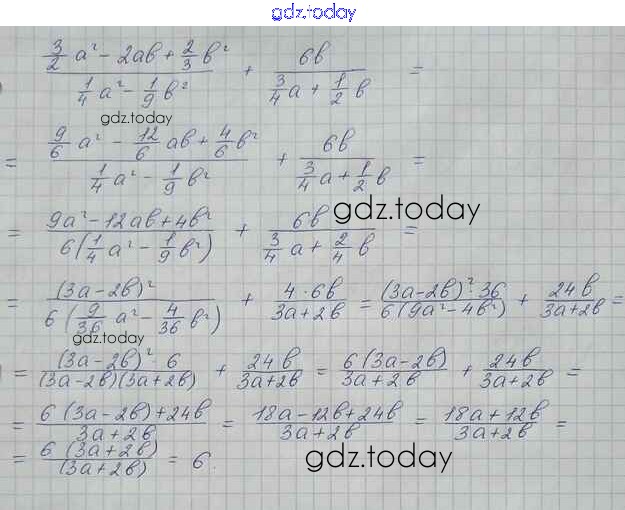 gdz.today
(3/2 a² - 2ab + 2/3 b²)/(1/4 a² - 1/9 b²) + 6b/(3/4 a + 1/2 b) =
gdz.today
= (9/6 a² - 12/6 ab + 4/6 b²)/(1/4 a² - 1/9 b²) + 6b/(3/4 a + 1/2 b) =
gdz.today
= (9a² - 12ab + 4b²)/(6(1/4 a² - 1/9 b²)) + 6b/(3/4 a + 2/4 b) =
= (3a - 2b)²/(6(9/36 a² - 4/36 b²)) + (4 · 6b)/(3a + 2b) = ((3a - 2b)² · 36)/(6(9a² - 4b²)) + 24b/(3a + 2b) =
gdz.today
= ((3a - 2b)² · 6)/((3a - 2b)(3a + 2b)) + 24b/(3a + 2b) = (6(3a - 2b))/(3a + 2b) + 24b/(3a + 2b) =
= (6(3a - 2b) + 24b)/(3a + 2b) = (18a - 12b + 24b)/(3a + 2b) = (18a + 12b)/(3a + 2b) =
= (6(3a + 2b))/((3a + 2b)) = 6.
gdz.today